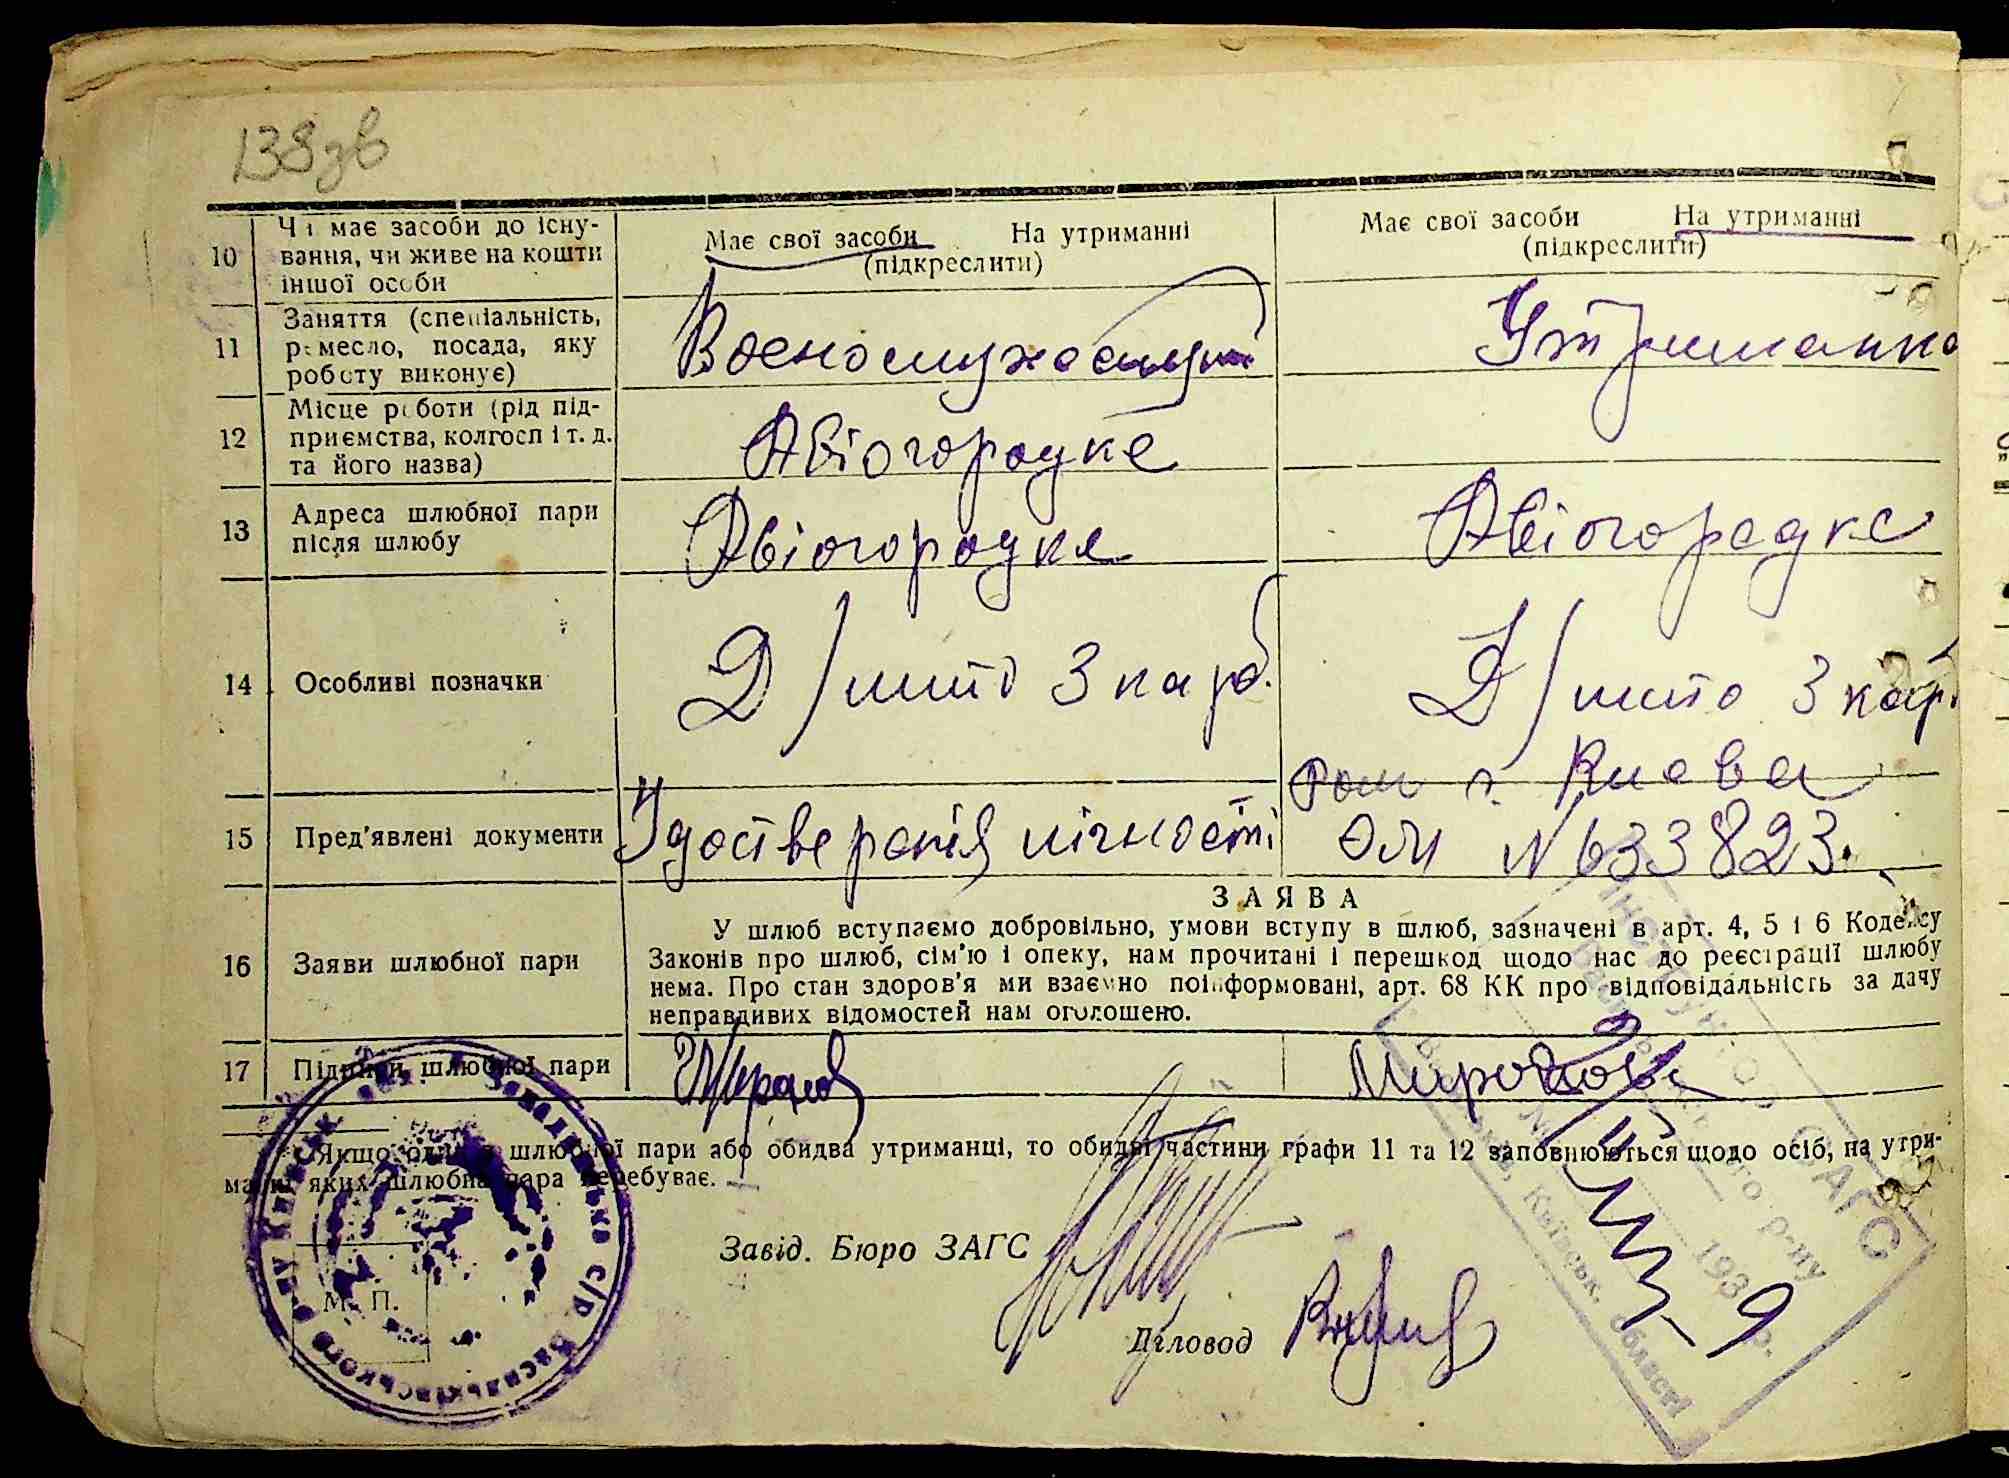 138зв
10
Чи має засоби до існу-
вання, чи живе на кошти
іншої особи
Має свої засоби На утриманні
(підкреслити)
Має свої засоби На утриманні
(підкреслити)
11
Заняття (спеціальність,
ремесло, посада, яку
роботу виконує)
Воєнослужеащий
Утриманка
12
Місце роботи (рід під-
приємства, колгосп і т. д.
та його назва)
Авіогородке
13
Адреса шлюбної пари
після шлюбу
Авіогородке
Авіогородке
14
Особливі позначки
Д/мито 3 карб.
Д/мито 3 карб
15
Пред'явлені документи
Удостверенія лічності
г. Киева
№ 633823.
16
Заяви шлюбної пари
ЗАЯВА
У шлюб вступаємо добровільно, умови вступу в шлюб, зазначені в арт. 4, 5 і 6 Кодексу
Законів про шлюб, сім'ю і опеку, нам прочитані і перешкод щодо нас до реєстрації шлюбу
нема. Про стан здоров'я ми взаємно поінформовані, арт. 68 КК про відповідальність за дачу
неправдивих відомостей нам оголошено.
17
Підписи шлюбної пари
Якщо один з шлюбної пари або обидва утриманці, то обидві частини графи 11 та 12 заповнюються щодо осіб, на утри-
манні яких шлюбна пара перебуває.
Завід. Бюро ЗАГС
М. П.
Діловод
Інструктор ЗАГС
Васильківського р-ну
193 9 р.
м. Васильків, Київськ. області